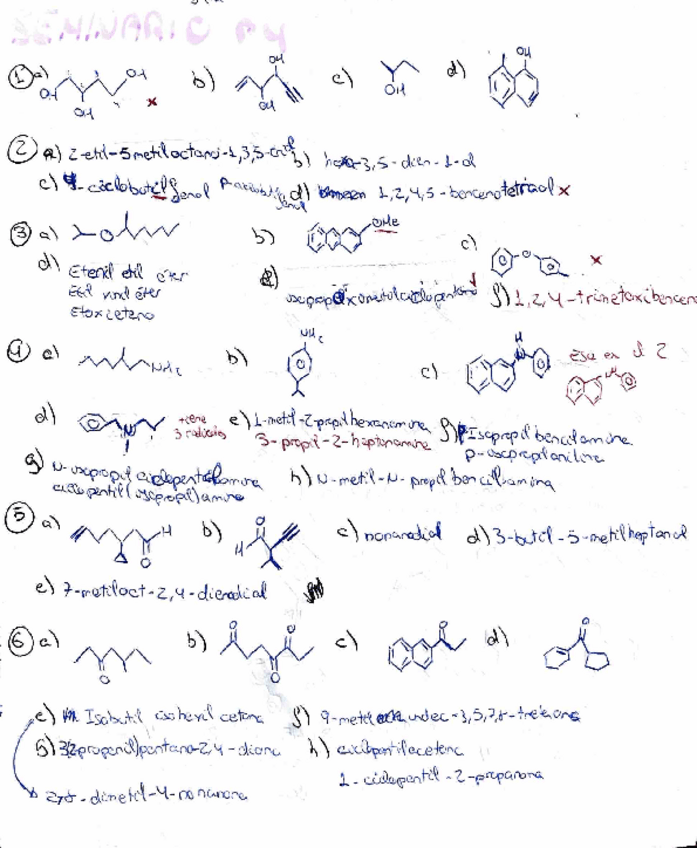 ① a) OH OH OH x b) OH OH c) OH d) OH
② a) 2-etil-5metiloctano-1,3,5-triol b) hexa-3,5-dien-1-ol
c) 4-ciclobutil fenol d) 1,2,4,5-bencenotetraol x
③ a) O b) OMe c) O x
d) Etenil etil éter
Etil vinil éter
Etoxieteno
f) 1,2,4-trimetoxibenceno
④ a) NH₂ b) NH₂ c) H N Ese es el 2 NH
d) N tiene 3 radicales e) 1-metil-2-propilhexanamina f) Isopropil bencilamina
3-propil-2-heptanamina p-isopropilanilina
g) N-isopropil ciclopentilamina h) N-metil-N-propil bencilamina
ciclopentil(isopropil)amina
⑤ a) H O b) O H c) nonanodial d) 3-butil-5-metilheptanal
e) 7-metiloct-2,4-dienodial
⑥ a) O b) O O O c) O d) O
e) Isobutil isohexil cetona f) 9-metil undec-3,5,7
g) 3(2propenil)pentano-2,4-diona h) ciclopentilacetona
1-ciclopentil-2-propanona
2,8-dimetil-4-nonanona